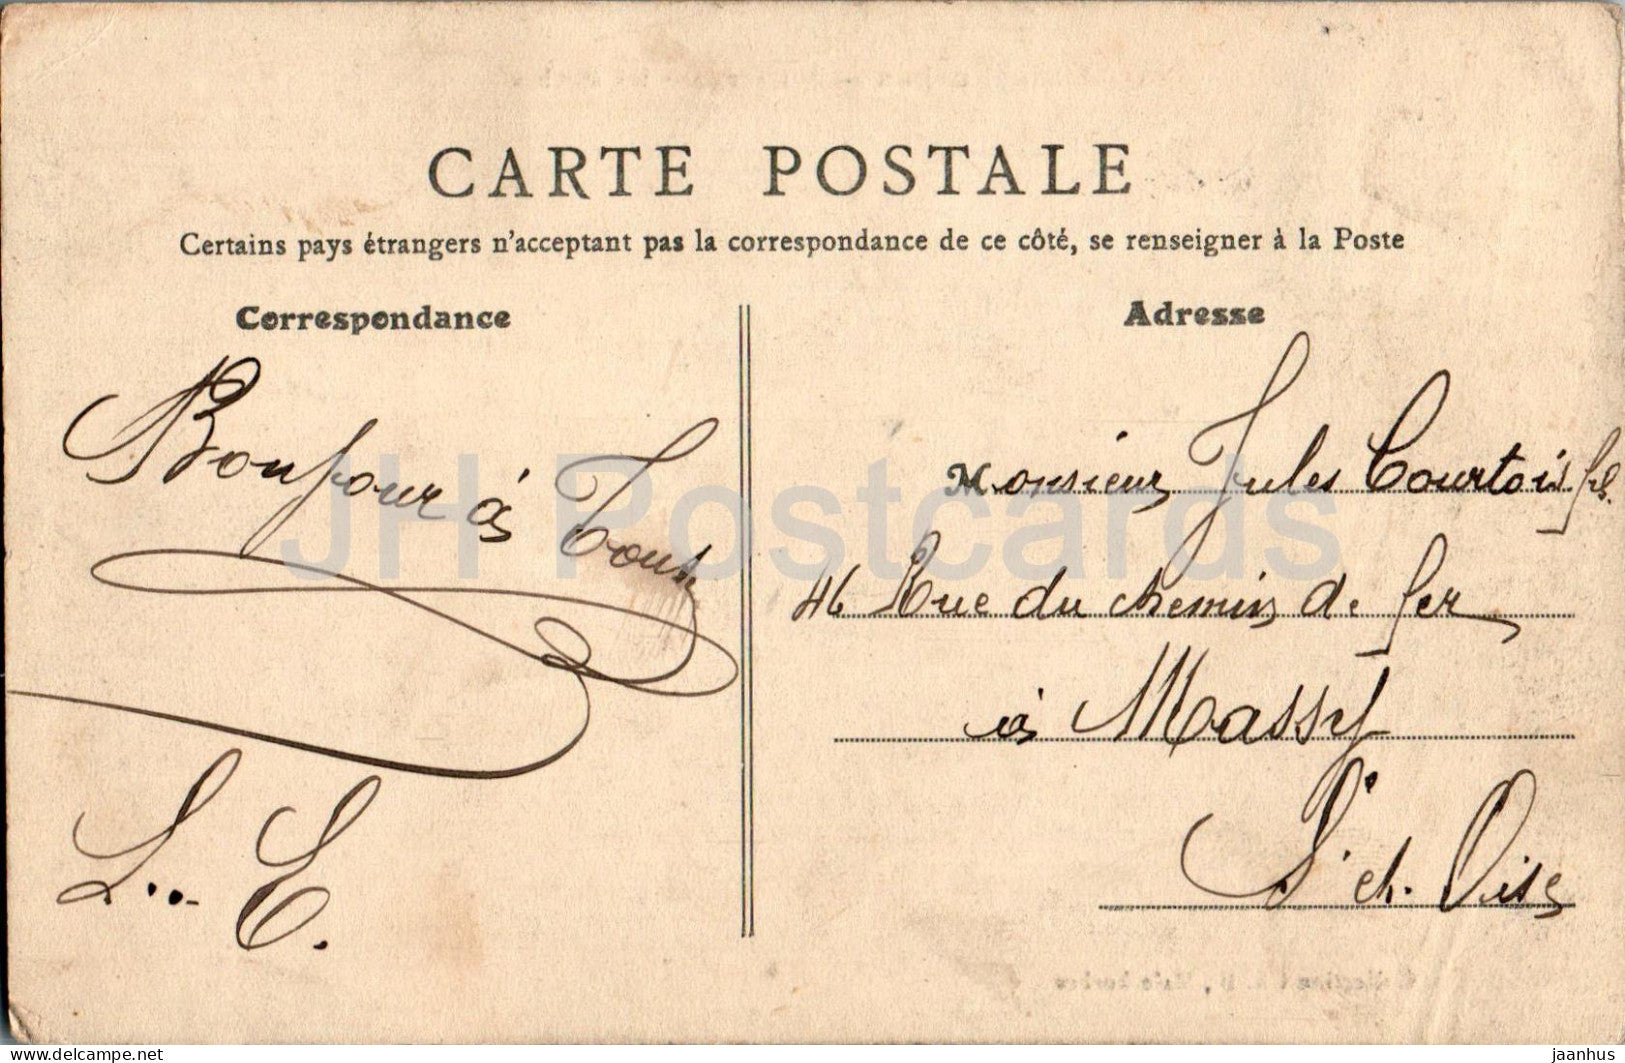 CARTE POSTALE
Certains pays étrangers n'acceptant pas la correspondance de ce côté, se renseigner à la Poste
Correspondance
Adresse
Bonjour à Tous
L.. E.
Monsieur Jules Courtois fils
46 Rue du chemin de fer
à Massy
S. et. Oise
JH Postcards
delcampe.net
jaanhus